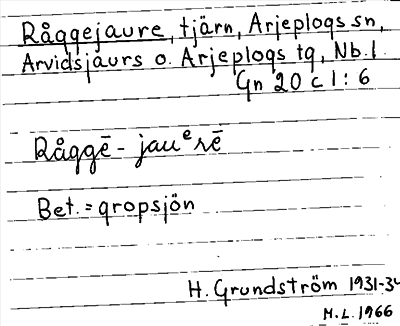 Råggejaure, tjärn, Arjeplogs sn,
Arvidsjaurs o. Arjeplogs tg, Nb.l.
Gn 20 c 1 : 6
Råggē - jauᵉrē
Bet. = gropsjön
H. Grundström 1931-34
M.L. 1966